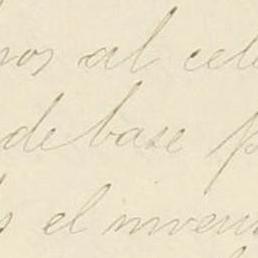 nos al cele
de base p
s el inven